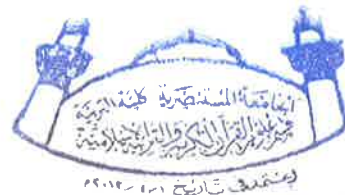 الجامعة المستنصرية كلية التربية
قسم علوم القرآن الكريم والتربية الإسلامية
اعتمد في تاريخ